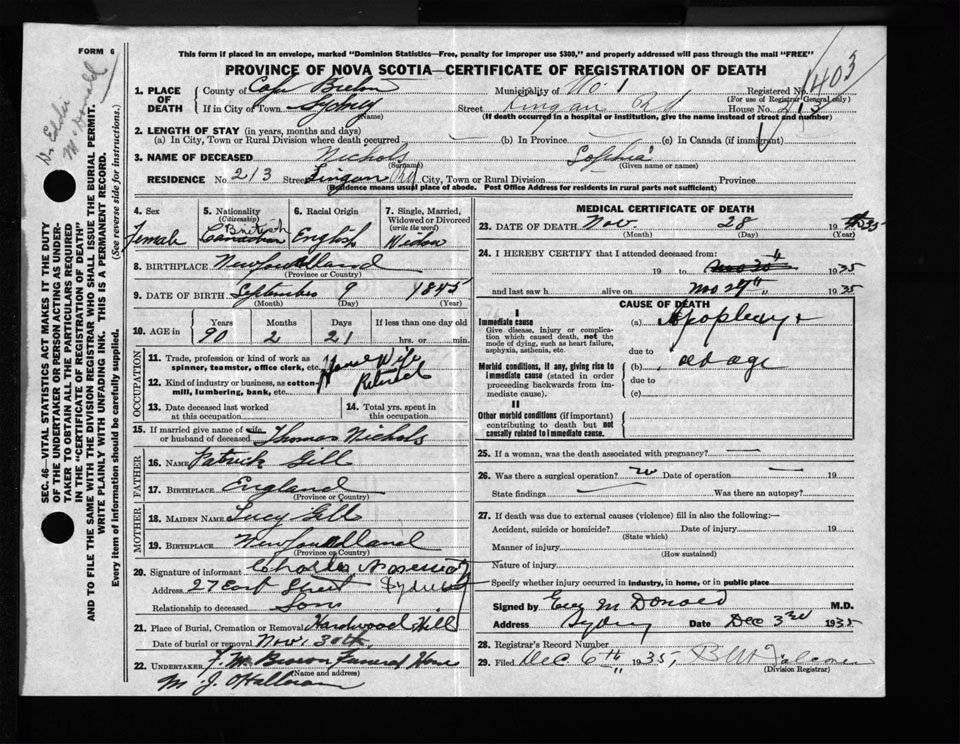 FORM 6
This form if placed in an envelope, marked "Dominion Statistics—Free, penalty for improper use $300," and properly addressed will pass through the mail "FREE"
PROVINCE OF NOVA SCOTIA—CERTIFICATE OF REGISTRATION OF DEATH
1403
1. PLACE OF DEATH
County of Cape Breton
Municipality of No. 1
Registered No.
(For use of Registrar General only)
If in City of Town Sydney
(Name)
Street Lingan Rd
House No. 213
(If death occurred in a hospital or institution, give the name instead of street and number)
2. LENGTH OF STAY (in years, months and days)
(a) In City, Town or Rural Division where death occurred — (b) In Province — (c) In Canada (if immigrant)
3. NAME OF DECEASED Nichols Sophia
(Surname) (Given name or names)
RESIDENCE No. 213 Street Lingan Rd City, Town or Rural Division Province
(Residence means usual place of abode. Post Office Address for residents in rural parts not sufficient)
4. Sex
Female
5. Nationality
(Citizenship)
British
Canadian
6. Racial Origin
English
7. Single, Married, Widowed or Divorced
(write the word)
Widow
8. BIRTHPLACE Newfoundland
(Province or Country)
9. DATE OF BIRTH September 9 1845
(Month) (Day) (Year)
10. AGE in Years Months Days If less than one day old
90 2 21 hrs. or min.
OCCUPATION
11. Trade, profession or kind of work as spinner, teamster, office clerk, etc. House Wife
12. Kind of industry or business, as cotton mill, lumbering, bank, etc. Retired
13. Date deceased last worked at this occupation
14. Total yrs. spent in this occupation
15. If married give name of wife or husband of deceased Thomas Nichols
FATHER
16. NAME Patrick Gill
17. BIRTHPLACE England
(Province or Country)
MOTHER
18. MAIDEN NAME Lucy Gill
19. BIRTHPLACE Newfoundland
(Province or Country)
20. Signature of informant Charles
Address 27 East Street Sydney
Relationship to deceased Son
21. Place of Burial, Cremation or Removal Hardwood Hill
Date of burial or removal Nov. 30th
22. UNDERTAKER Funeral Home
(Name and address)
M. J. O'Halloran
MEDICAL CERTIFICATE OF DEATH
23. DATE OF DEATH Nov. 28 19 35
(Month) (Day) (Year)
24. I HEREBY CERTIFY that I attended deceased from:
19 to Nov 30th 1935
and last saw h alive on Nov 27th 1935
CAUSE OF DEATH
I
Immediate cause
Give disease, injury or complication which caused death, not the mode of dying, such as heart failure, asphyxia, asthenia, etc.
(a) Apoplexy +
due to
Morbid conditions, if any, giving rise to immediate cause (stated in order proceeding backwards from immediate cause).
(b) old age
due to
(c)
II
Other morbid conditions (if important) contributing to death but not causally related to immediate cause.
25. If a woman, was the death associated with pregnancy? —
26. Was there a surgical operation? no Date of operation — 19
State findings — Was there an autopsy?
27. If death was due to external causes (violence) fill in also the following:—
Accident, suicide or homicide? Date of injury 19
(State which)
Manner of injury
(How sustained)
Nature of injury
Specify whether injury occurred in industry, in home, or in public place
Signed by McDonald M.D.
Address Sydney Date Dec 3rd 1935
28. Registrar's Record Number
29. Filed Dec 6th 1935
(Division Registrar)
SEC. 46—VITAL STATISTICS ACT MAKES IT THE DUTY
OF THE UNDERTAKER OR PERSON ACTING AS UNDERTAKER
TO OBTAIN ALL THE PARTICULARS REQUIRED
IN THE "CERTIFICATE OF REGISTRATION OF DEATH"
AND TO FILE THE SAME WITH THE DIVISION REGISTRAR WHO SHALL ISSUE THE BURIAL PERMIT.
WRITE PLAINLY WITH UNFADING INK. THIS IS A PERMANENT RECORD.
Every item of information should be carefully supplied. (See reverse side for instructions.)